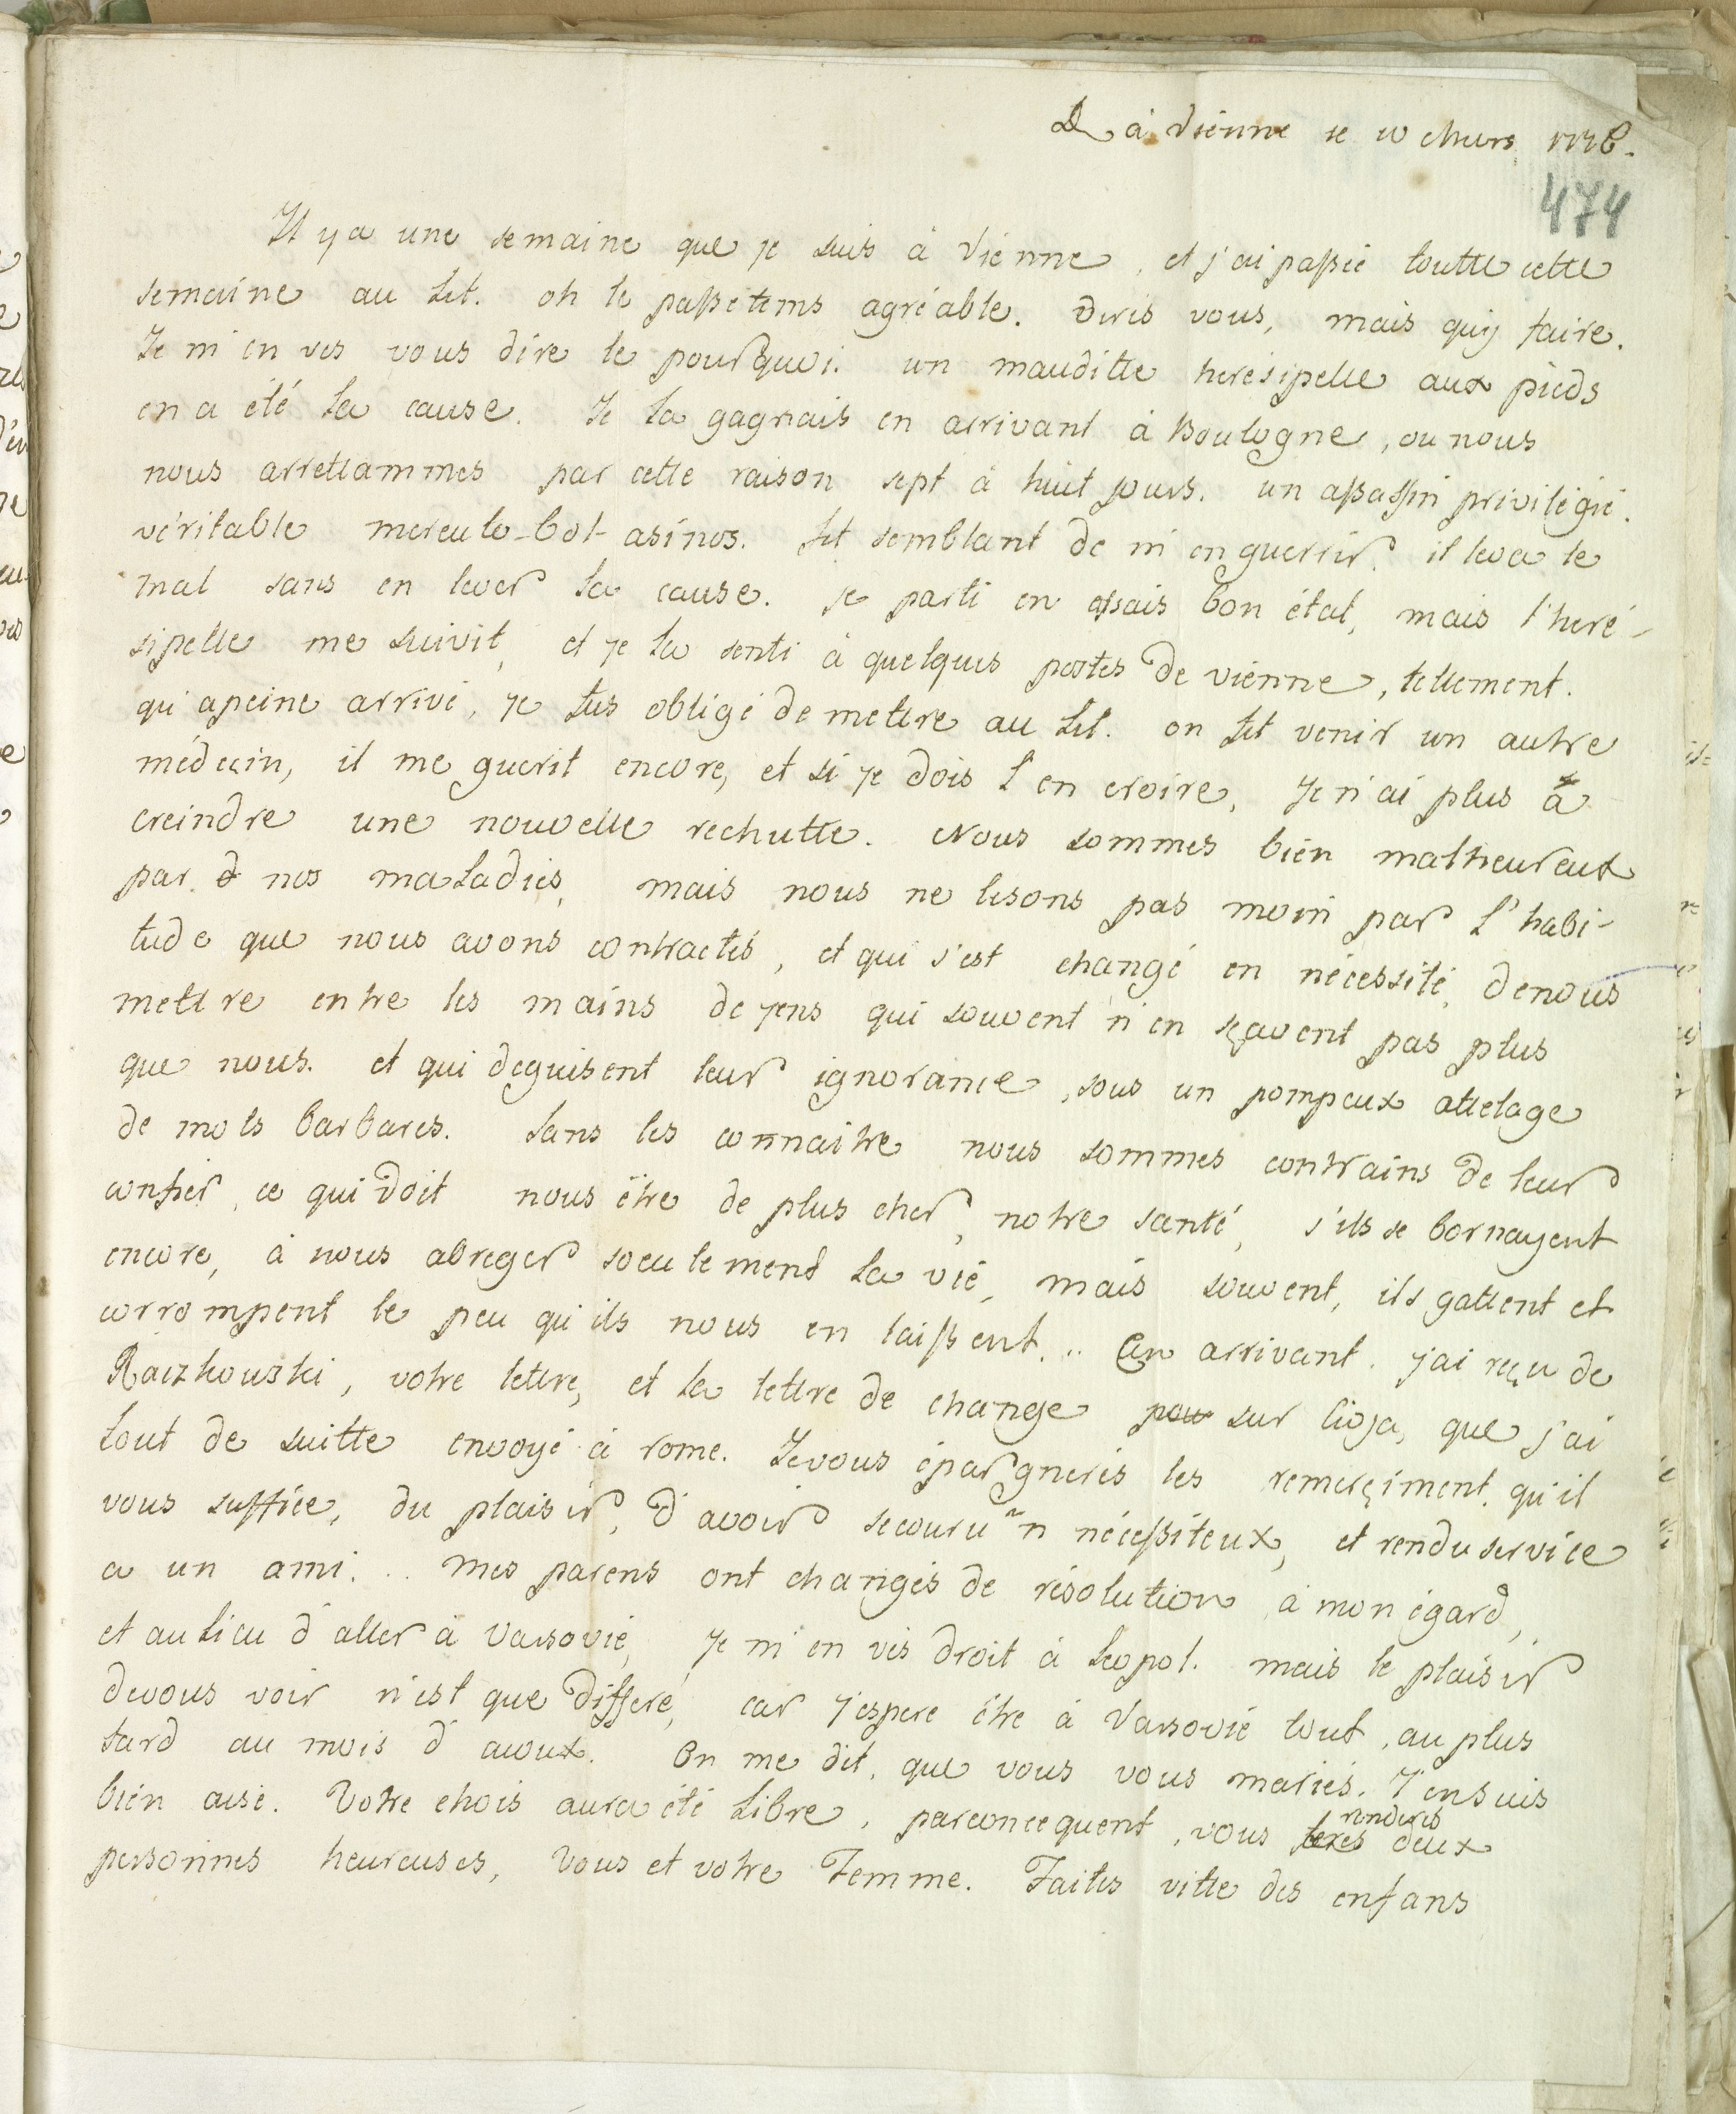 à Vienne le 10 Mars 1778.
474
Il y a une semaine que je suis à Vienne, et j'ai passé toutte cette
semaine au lit. oh le passetems agréable. Dires vous, mais quy faire.
Je m'en ves vous dire le pourquoi. un mauditte heresipelle aux pieds
en a été la cause. Je la gagnais en arrivant à Boulogne, ou nous
nous arrettammes par cette raison sept à huit jours. un assassin privilégié.
véritable mereulo-bol-asinos. fit semblant de m'en guerrir. il leva le
mal sans en lever la cause. je parti en assais bon état, mais l'heré-
sipelle me suivit, et je la senti à quelques postes de vienne, tellement.
qu'apeine arrivé, je fus obligé de mettre au lit. on fit venir un autre
médecin, il me guerit encore, et si je dois l'en croire, Je n'ai plus à
creindre une nouvelle rechutte. Nous sommes bien malheureux
par nos maladies, mais nous ne lesons pas moin par l'habi-
tude que nous avons contractés, et qui s'est changé en nécessité, denous
mettre entre les mains de jens qui souvent n'en sçavent pas plus
que nous. et qui deguisent leur ignorance, sous un pompeux attelage
de mots barbares. Sans les connaitre nous sommes contrains de leur
confier, ce qui doit nous être de plus cher, notre santé, s'ils se bornayent
encore, à nous abreger soeulement la vie, mais souvent, ils gattent et
corrompent le peu qu'ils nous en laissent... En arrivant. j'ai reçu de
Raczkouski, votre lettre, et la lettre de change pour sur Cioja, que j'ai
tout de suitte envoyé à rome. Je vous épargnerés les remerçiment, qu'il
vous suffice, du plaisir, d'avoir secouru un nécessiteux, et rendu service
a un ami... mes parens ont changés de résolution à mon égard,
et au lieu d'aller à Varsovie, Je m'en vis droit à Leopol. mais le plaisir
devous voir n'est que differé, car j'espere être à Varsovie tout, au plus
tard au mois d'aoux. On me dit, que vous vous mariés. J'en suis
bien aisé. Votre chois aura été libre, parconcequent, vous feres rendres deux
personnes heureuses, Vous et votre Femme. Faites vitte des enfans